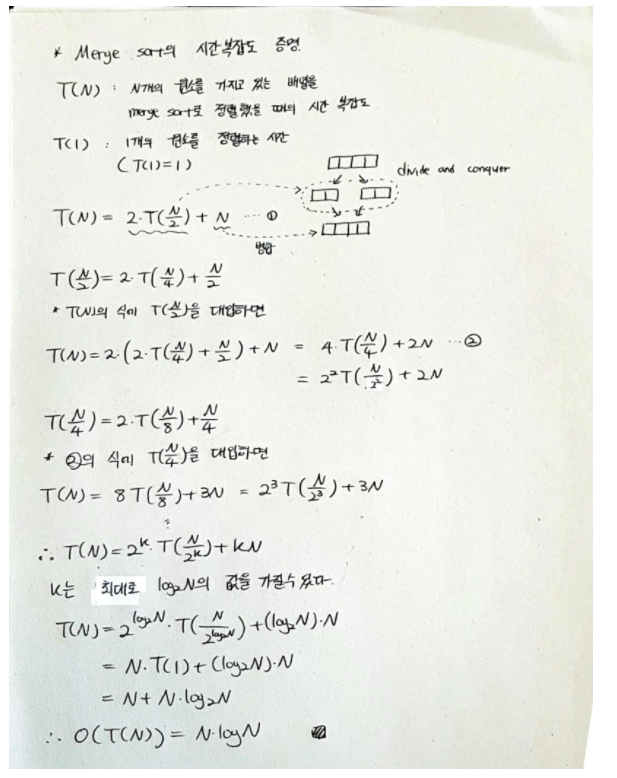 * Merge sort의 시간복잡도 증명
T(N) : N개의 원소를 가지고 있는 배열을
merge sort로 정렬했을 때의 시간 복잡도
T(1) : 1개의 원소를 정렬하는 시간
(T(1)=1)
divide and conquer
T(N) = 2·T(N/2) + N ··· ①
병합
T(N/2) = 2·T(N/4) + N/2
* T(N)의 식에 T(N/2)을 대입하면
T(N) = 2·(2·T(N/4) + N/2) + N = 4·T(N/4) + 2N ··· ②
= 2²T(N/2²) + 2N
T(N/4) = 2·T(N/8) + N/4
* ②의 식에 T(N/4)을 대입하면
T(N) = 8T(N/8) + 3N = 2³T(N/2³) + 3N
⋮
∴ T(N) = 2^k·T(N/2^k) + kN
k는 최대로 log₂N의 값을 가질수 있다.
T(N) = 2^(log₂N)·T(N/2^(log₂N)) + (log₂N)·N
= N·T(1) + (log₂N)·N
= N + N·log₂N
∴ O(T(N)) = N·logN